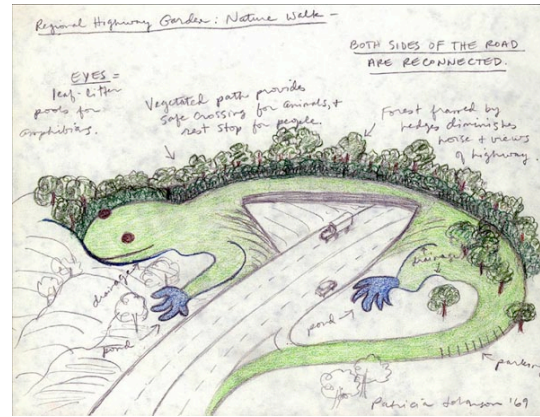 Regional Highway Garden: Nature Walk -
BOTH SIDES OF THE ROAD
ARE RECONNECTED.
EYES =
leaf-litter
pools for
amphibians.
Vegetated path provides
safe crossing for animals, +
rest stop for people.
Forest framed by
hedges diminishes
noise + views
of highway.
drainage
pond
drainage
pond
parking
Patricia Johanson '69